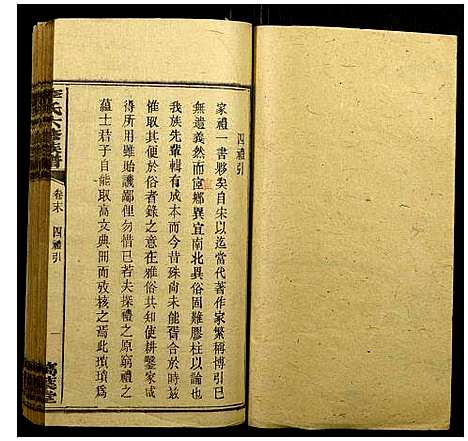 四禮引
家禮一書夥矣自宋以迄當代著作家繁稱博引已
無遺義然而宦鄉異宜南北異俗固難膠柱以論也
我族先輩輯有成本而今昔殊尚未能胥合於時玆
惟取其便於俗者錄之意在雅俗共知使耕鑿家咸
得所用雖貽譏鄙俚勿惜已若夫探禮之原窮禮之
蘊士君子自能取高文典冊而攷核之焉此瑣瑣爲
氏六修族譜
卷末
四禮引
一
堂